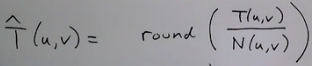 T̂(u,v) = round ( T(u,v) / N(u,v) )